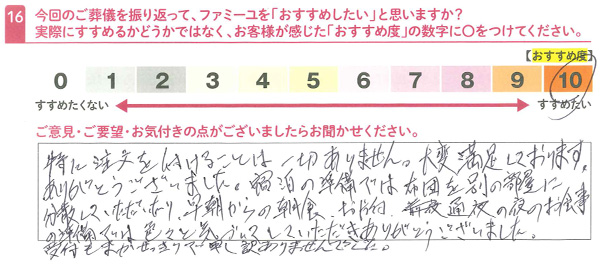 16 今回のご葬儀を振り返って、ファミーユを「おすすめしたい」と思いますか？
実際にすすめるかどうかではなく、お客様が感じた「おすすめ度」の数字に〇をつけてください。
【おすすめ度】
0 1 2 3 4 5 6 7 8 9 10
すすめたくない すすめたい
ご意見・ご要望・お気付きの点がございましたらお聞かせください。
特に注文を付けることは一切ありません。大変満足しております。
ありがとうございました。宿泊の準備では布団を別の部屋に
分散していただいたり、早朝からの朝食、お片付、通夜の夜のお食事
の準備では色々と気づかいしていただきありがとうございました。
受付もまかせっきりで申し訳ありませんでした。